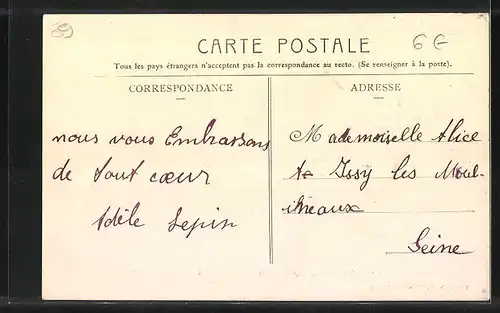 89
CARTE POSTALE
6 €
Tous les pays étrangers n'acceptent pas la correspondance au recto. (Se renseigner à la poste).
CORRESPONDANCE
ADRESSE
nous vous Embrassons
de tout cœur
Adèle Lepin
Mademoiselle Alice
Issy les Moul-
ineaux
Seine